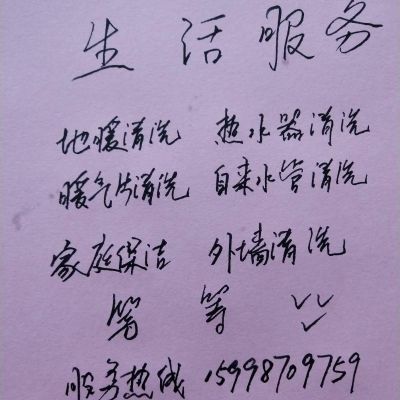 生活服务
地暖清洗 热水器清洗
暖气片清洗 自来水管清洗
家庭保洁 外墙清洗
等 等
服务热线 15998709759